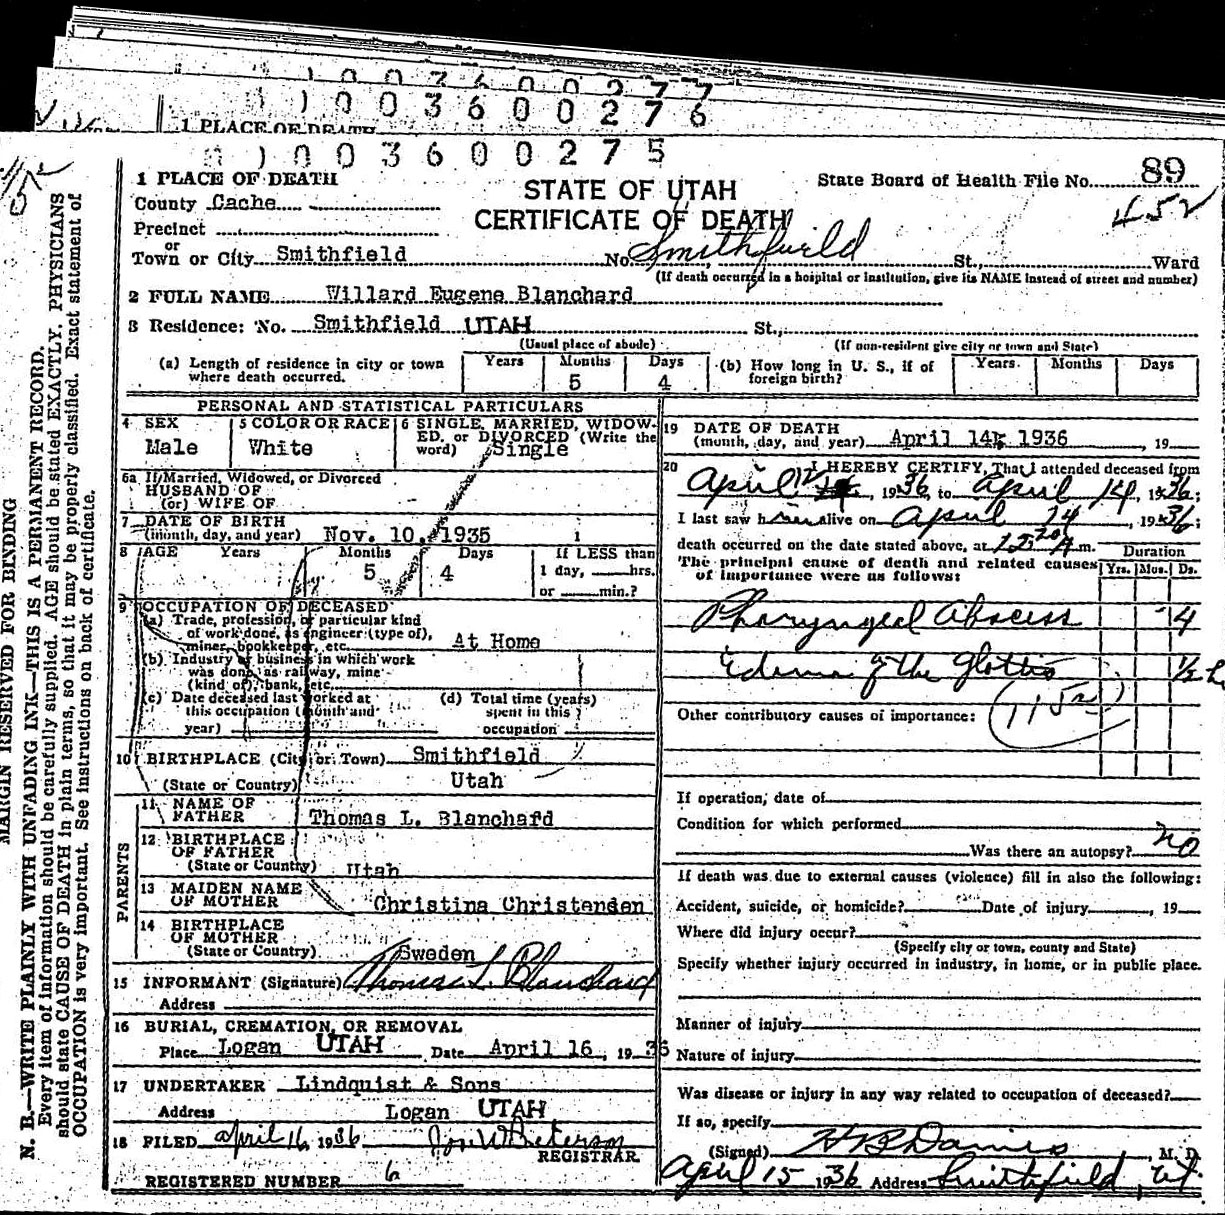 1 0 0 3 6 0 0 2 7 7
1 0 0 3 6 0 0 2 7 6
1 PLACE OF DEATH
1 0 0 3 6 0 0 2 7 5
1 PLACE OF DEATH
STATE OF UTAH
CERTIFICATE OF DEATH
State Board of Health File No. 89
452
County Cache
Precinct
or
Town or City Smithfield No. Smithfield St., Ward
(If death occurred in a hospital or institution, give its NAME instead of street and number)
2 FULL NAME Willard Eugene Blanchard
3 Residence: No. Smithfield UTAH St.,
(Usual place of abode) (If non-resident give city or town and State)
(a) Length of residence in city or town where death occurred. Years Months 5 Days 4
(b) How long in U. S., if of foreign birth? Years Months Days
PERSONAL AND STATISTICAL PARTICULARS
4 SEX Male
5 COLOR OR RACE White
6 SINGLE, MARRIED, WIDOWED, or DIVORCED (Write the word) Single
6a If Married, Widowed, or Divorced
HUSBAND OF
(or) WIFE OF
7 DATE OF BIRTH
(month, day, and year) Nov. 10, 1935
8 AGE Years Months 5 Days 4 If LESS than 1 day, hrs. or min.?
9 OCCUPATION OF DECEASED
(a) Trade, profession, or particular kind of work done, as engineer (type of), miner, bookkeeper, etc. At Home
(b) Industry or business in which work was done, as railway, mine (kind of), bank, etc.
(c) Date deceased last worked at this occupation (month and year)
(d) Total time (years) spent in this occupation
10 BIRTHPLACE (City or Town) Smithfield
(State or Country) Utah
PARENTS
11 NAME OF FATHER Thomas L. Blanchard
12 BIRTHPLACE OF FATHER
(State or Country) Utah
13 MAIDEN NAME OF MOTHER Christina Christensen
14 BIRTHPLACE OF MOTHER
(State or Country) Sweden
15 INFORMANT (Signature) Thomas L. Blanchard
Address
16 BURIAL, CREMATION, OR REMOVAL
Place Logan UTAH Date April 16, 1936
17 UNDERTAKER Lindquist & Sons
Address Logan UTAH
18 FILED April 16 1936
REGISTRAR
REGISTERED NUMBER 6
19 DATE OF DEATH
(month, day, and year) April 14, 1936, 19
20 I HEREBY CERTIFY, That I attended deceased from
April 12, 1936, to April 14, 1936;
I last saw him alive on April 14, 1936;
death occurred on the date stated above, at 12:20 A m.
The principal cause of death and related causes of importance were as follows:
Duration
Yrs. Mos. Ds.
Pharyngeal Abscess 4
Edema of the Glottis 1/2 h
Other contributory causes of importance:
If operation, date of
Condition for which performed
Was there an autopsy? no
If death was due to external causes (violence) fill in also the following:
Accident, suicide, or homicide? Date of injury, 19
Where did injury occur?
(Specify city or town, county and State)
Specify whether injury occurred in industry, in home, or in public place.
Manner of injury
Nature of injury
Was disease or injury in any way related to occupation of deceased?
If so, specify
(Signed) M. D.
April 15 1936 Address Smithfield, Ut.
MARGIN RESERVED FOR BINDING
N. B.—WRITE PLAINLY WITH UNFADING INK—THIS IS A PERMANENT RECORD.
Every item of information should be carefully supplied. AGE should be stated EXACTLY. PHYSICIANS
should state CAUSE OF DEATH in plain terms, so that it may be properly classified. Exact statement of
OCCUPATION is very important. See instructions on back of certificate.